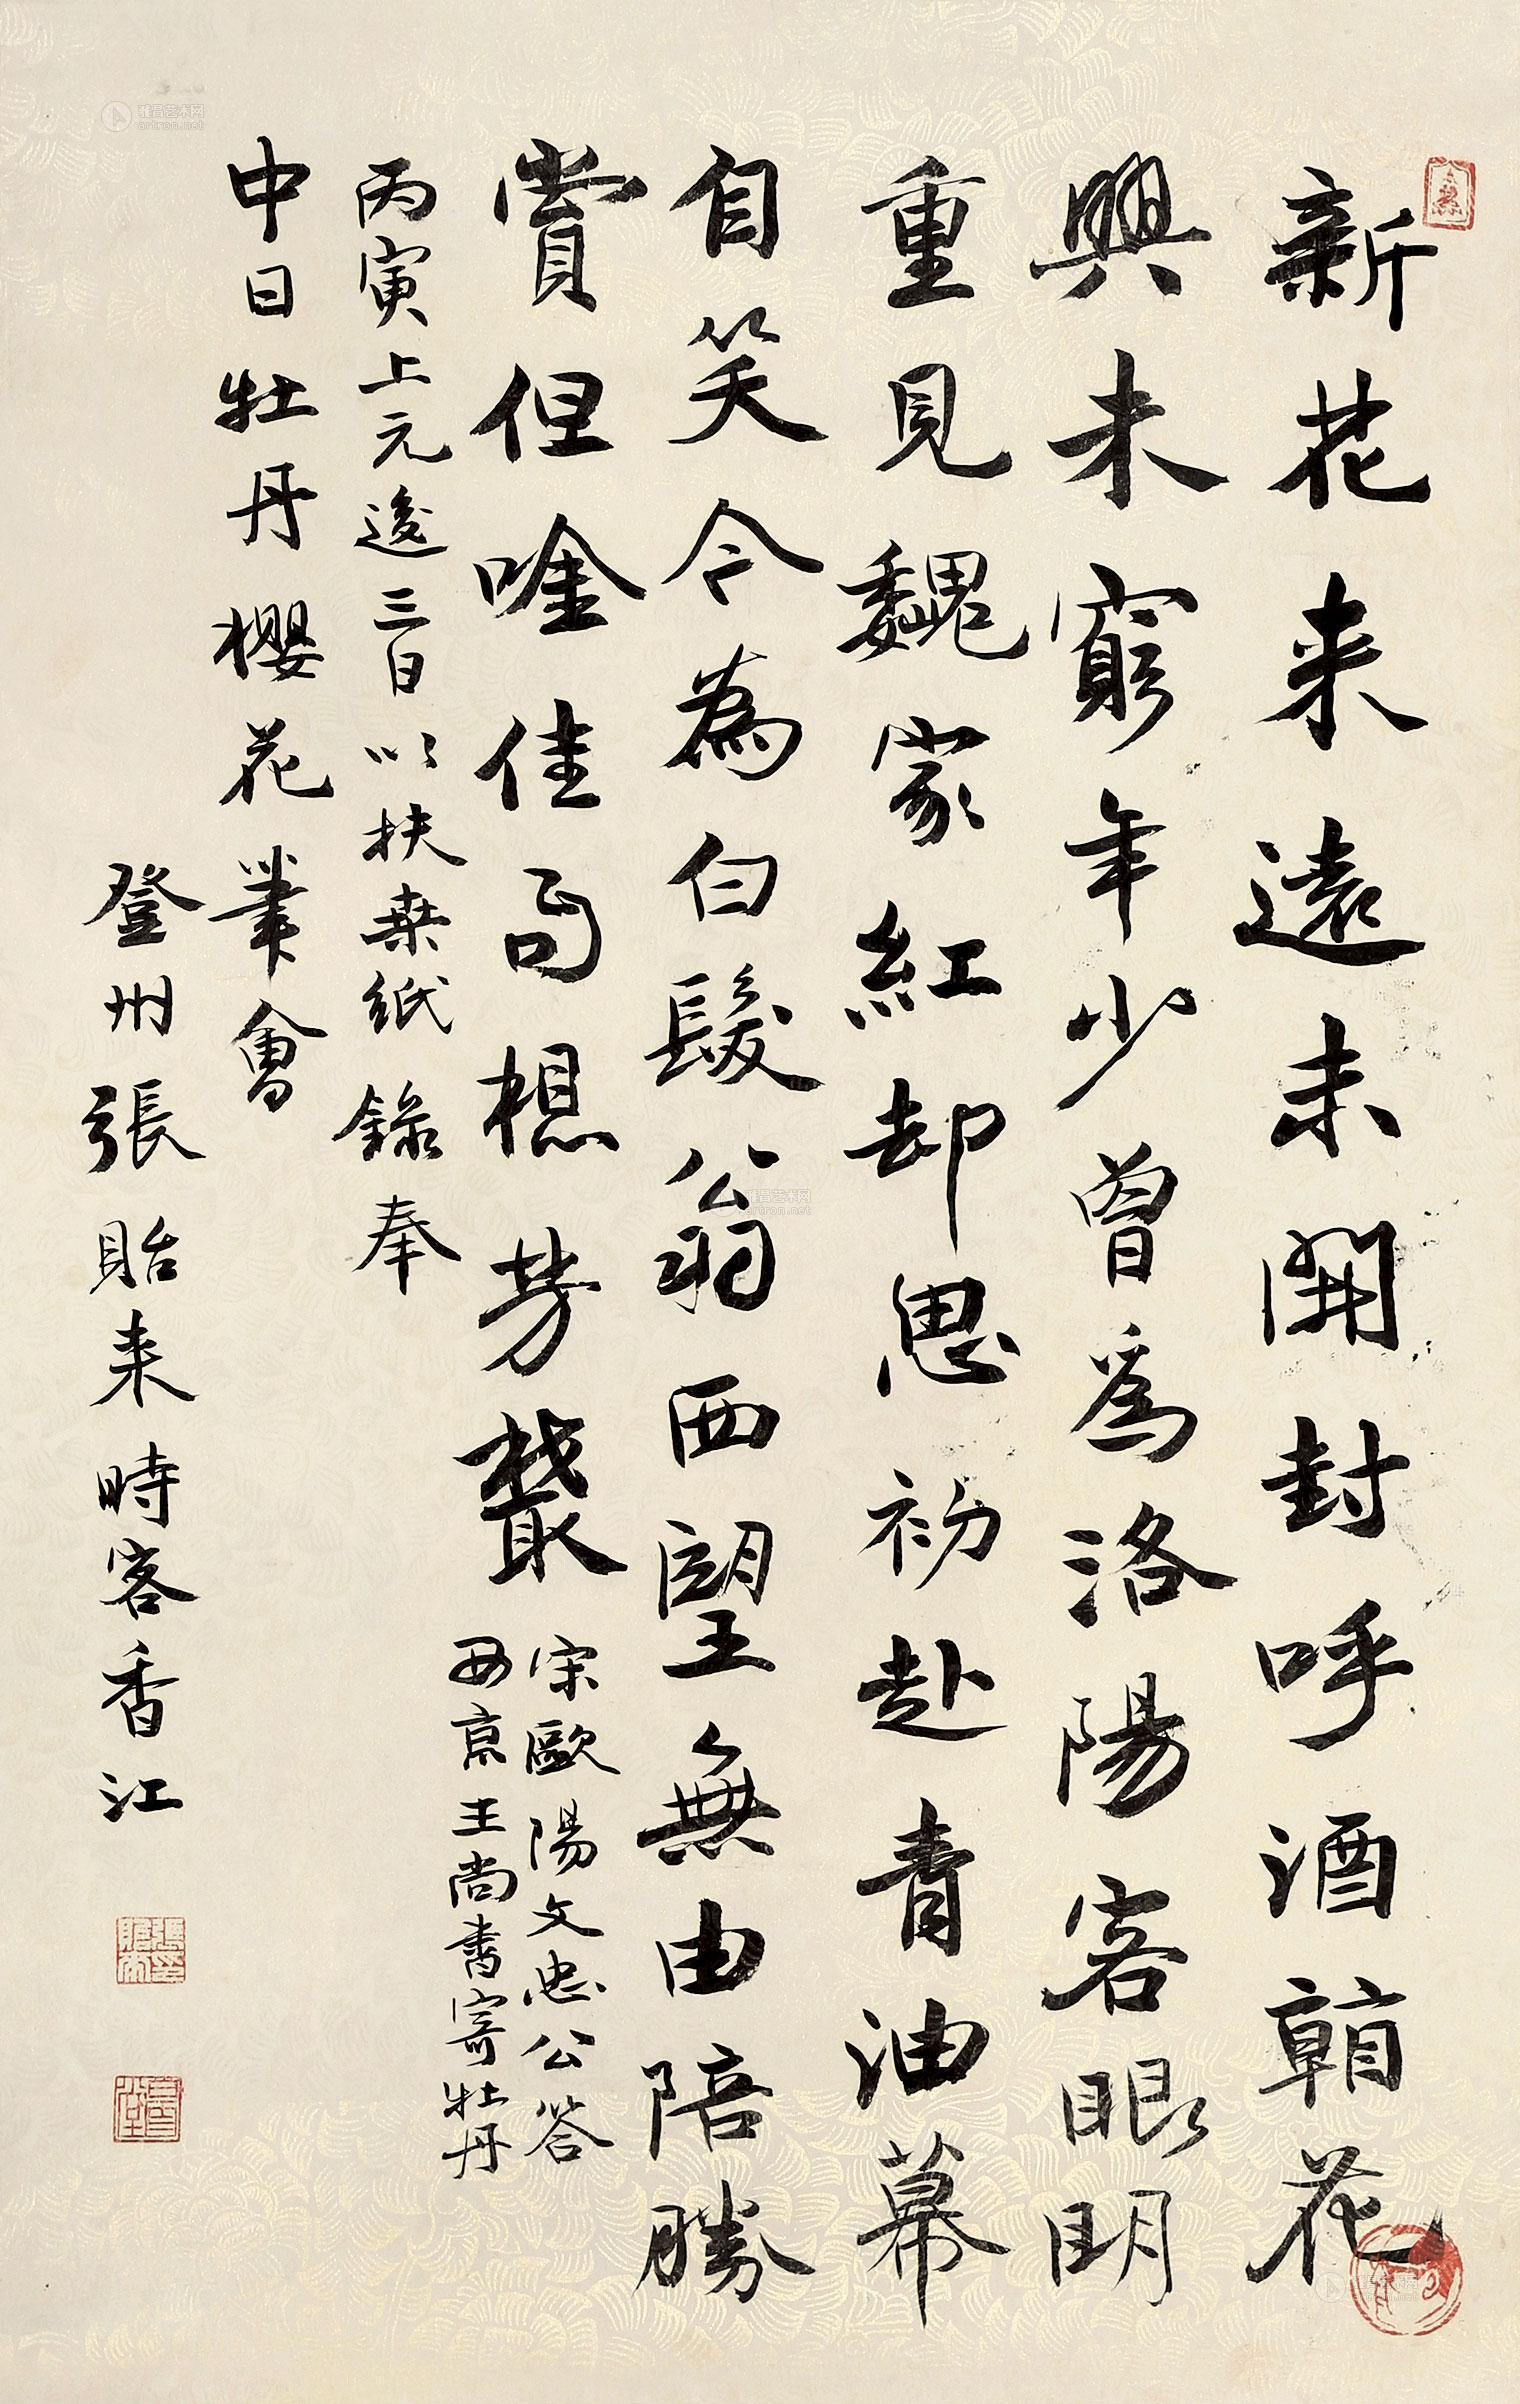 新花来遠未開封呼酒看花
興未窮年少曾為洛陽客眼明
重見魏家紅却思初赴青油幕
自笑今為白髮翁西望無由陪勝
賞但唫佳句想芳叢
宋歐陽文忠公答
西京王尚書寄牡丹
丙寅上元後三日以扶桑紙錄奉
中日牡丹櫻花業會
登州張貽来時客香江
雅昌艺术网
artron.net
雅昌艺术网
artron.net